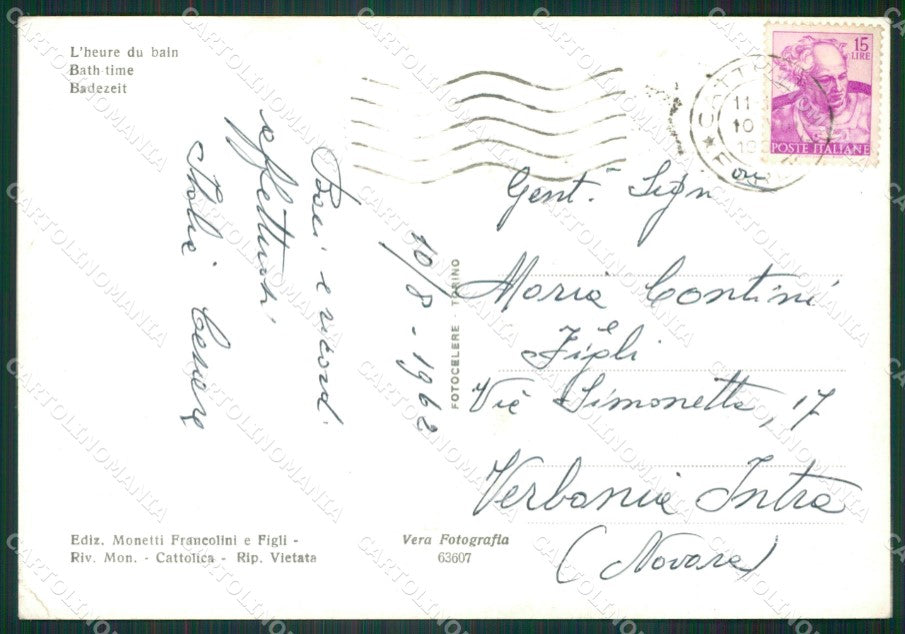 L'heure du bain
Bath-time
Badezeit
15
LIRE
POSTE ITALIANE
11
10
Baci e ricordi
affettuosi
10/8 - 1962
FOTOCELERE - TORINO
Gent. Sign
Maria Contini
e
Figli
Via Simonetta, 17
Verbania Intra
(Novara)
Ediz. Monetti Francolini e Figli -
Riv. Mon. - Cattolica - Rip. Vietata
Vera Fotografia
63607
CARTOLINOMANIA